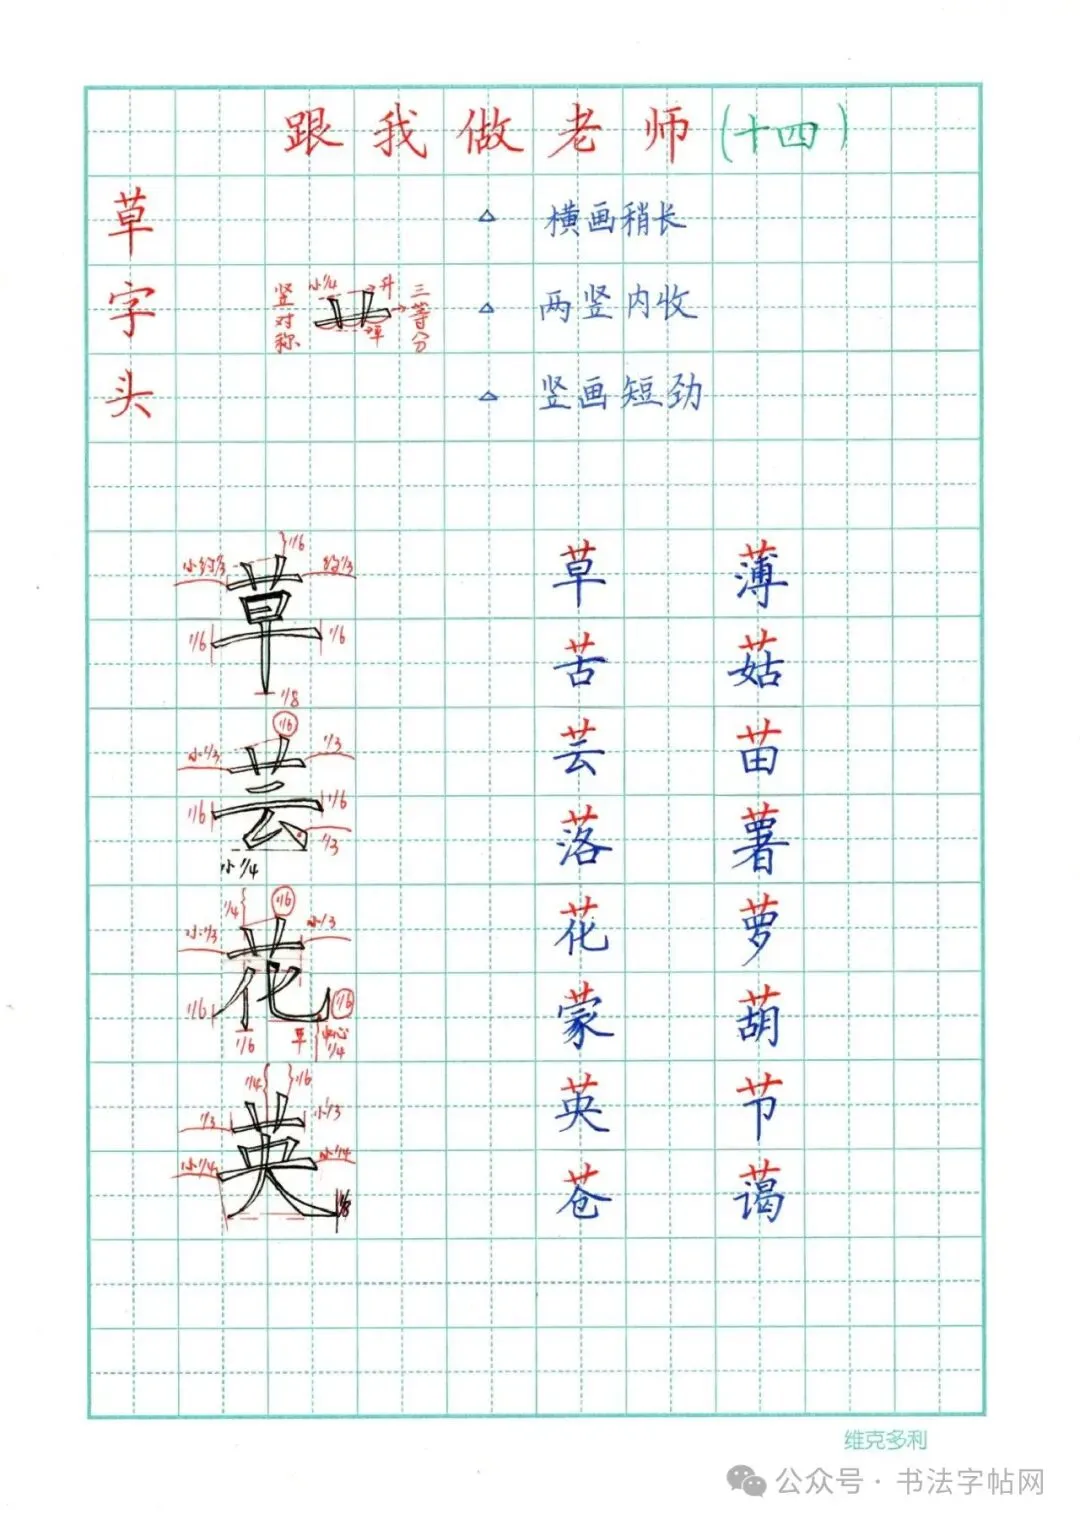 跟我做老师(十四)
草字头
竖对称
小1/4
升
三等分
平
△ 横画稍长
△ 两竖内收
△ 竖画短劲
1/6
小约1/3
约1/3
草
1/6
1/6
1/8
1/6
小1/3
1/3
芸
1/6
1/6
1/3
小1/4
1/4
1/6
小1/3
小1/3
花
1/6
1/6
1/6
平
1/4
1/4
1/6
1/3
小1/3
英
小1/4
小1/4
1/8
草 薄
苦 菇
芸 苗
落 薯
花 萝
蒙 葫
英 节
苍 蔼
维克多利
公众号·书法字帖网